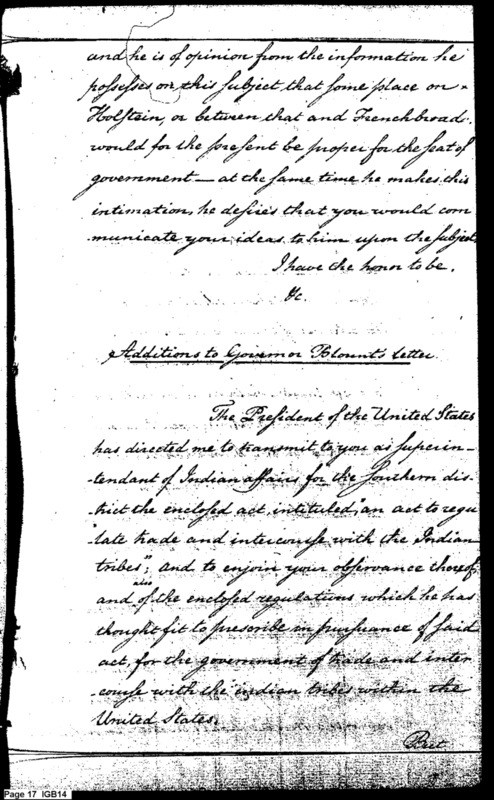 and he is of opinion from the information he
possesses on this subject that some place on
Holstein, or between that and Frenchbroad.
would for the present be proper for the seat of
government — at the same time he makes this
intimation, he desires that you would com
municate your ideas to him upon the subject.
I have the honor to be.
&c.
Additions to Governor Blount's Letter.
The President of the United States
has directed me to transmit to you as superin-
-tendant of Indian affairs for the southern dis-
-trict the enclosed act, intituled, "an act to regu
-late trade and intercourse with the Indian
tribes"; and to enjoin your observance thereof,
and also of the enclosed regulations which he has
thought fit to prescribe in pursuance of said
act, for the government of trade and inter
-course with the indian tribes within the
United States.
Page 17 IGB14